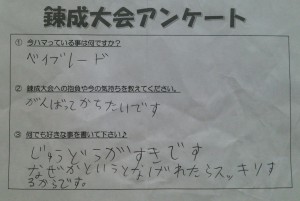 錬成大会アンケート
① 今ハマっている事は何ですか？
ベイブレード
② 錬成大会への抱負や今の気持ちを教えてください。
がんばってかちたいです
③ 何でも好きな事を書いて下さい♪
じゅうどうがすきです
なぜかというとなげれたらスッキリす
るからです。